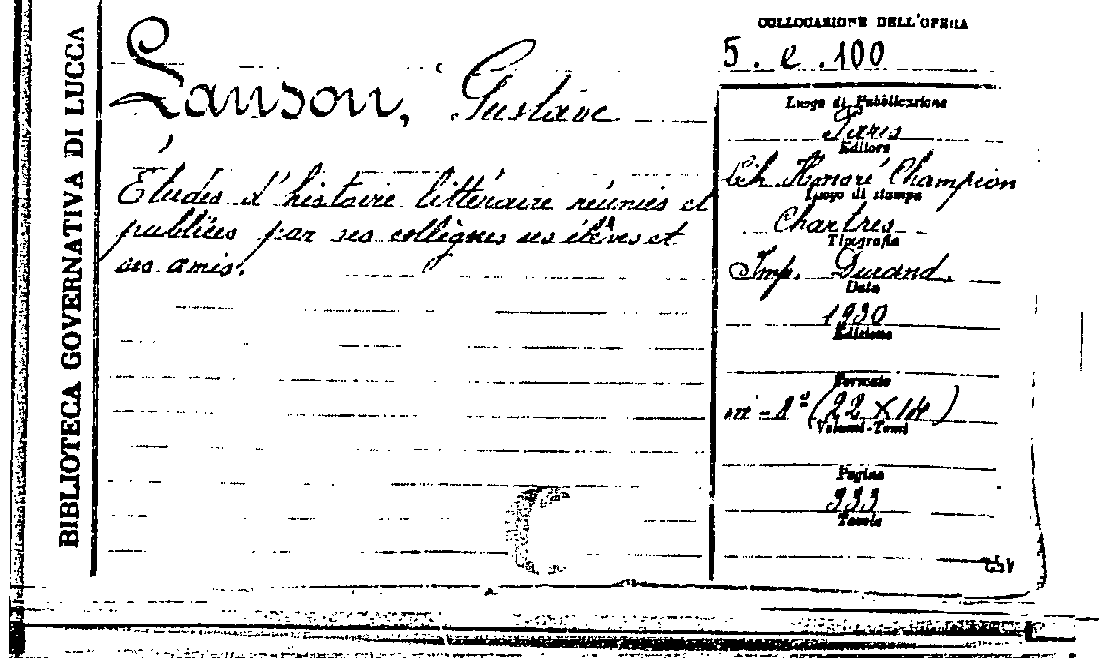 BIBLIOTECA GOVERNATIVA DI LUCCA
Lanson, Gustave
Études d'histoire littéraire réunies et
publiées par ses collègues ses élèves et
ses amis.
COLLOCAZIONE DELL'OPERA
5. e. 100
Luogo di Pubblicazione
Paris
Editore
Lib. Honoré Champion
Luogo di stampa
Chartres
Tipografia
Imp. Durand.
Data
1930
Edizione
Formato
in-8° (22 X 14)
Volumi-Tomi
Pagine
333
Tavole